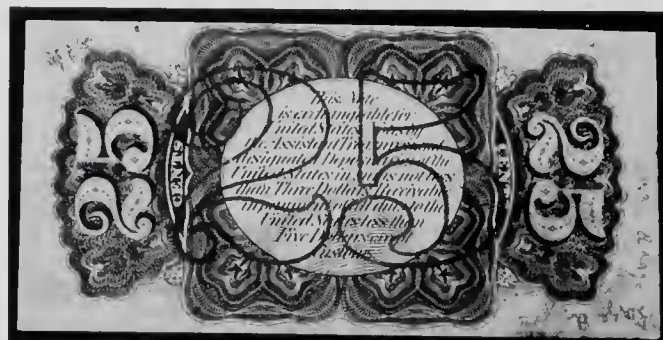 25
CENTS
25
This Note
is exchangeable for
United States Notes by
Assistant Treasurers
designated of the
United States in sums not less
than Three Dollars. Receivable
all dues to the
United States less than
Five Dollars except
Customs.
CENTS
25